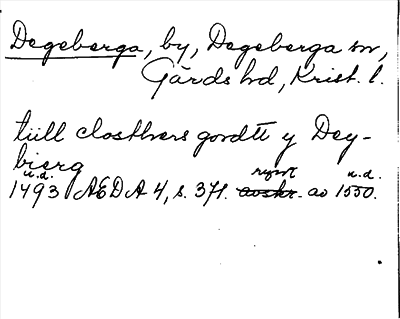 Degeberga, by, Degeberga sn,
Gärds hd, Krist. l.
till closthers gordtt y Dey-
bierg
u.d. rymt u.d.
1493 AEDA 4, s. 371. avskr. av 1550.